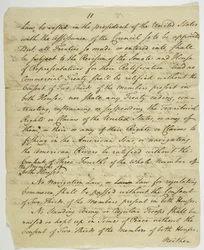 11
be vested in the president of the United States
with the Assistance of the Council so to be appointed
But all Treaties so made or entered into, shall
be subject to the Revision of the Senate and House
of Representatives for their Ratification. No
Commercial Treaty shall be ratified without the
Consent of two thirds of the Members present in
both Houses; nor shall any Treaty ceding, con-
tracting, restraining or suspending the Territorial
Rights or Claims of the United States, or any of
them or their or any of their Rights or Claims to
fishing in the American Seas, or navigating
the American Rivers be ratified without the
Consent of three fourths of the whole Number of
the Members of both Houses.
No navigation Law, or Law for regulating
Commerce shall be passed without the Consent
of two thirds of the Members present in both Houses.
No Standing Army or Regular Troops shall be
raised or kept up in time of Peace without the
Consent of two thirds of the Members of both Houses.
Neither